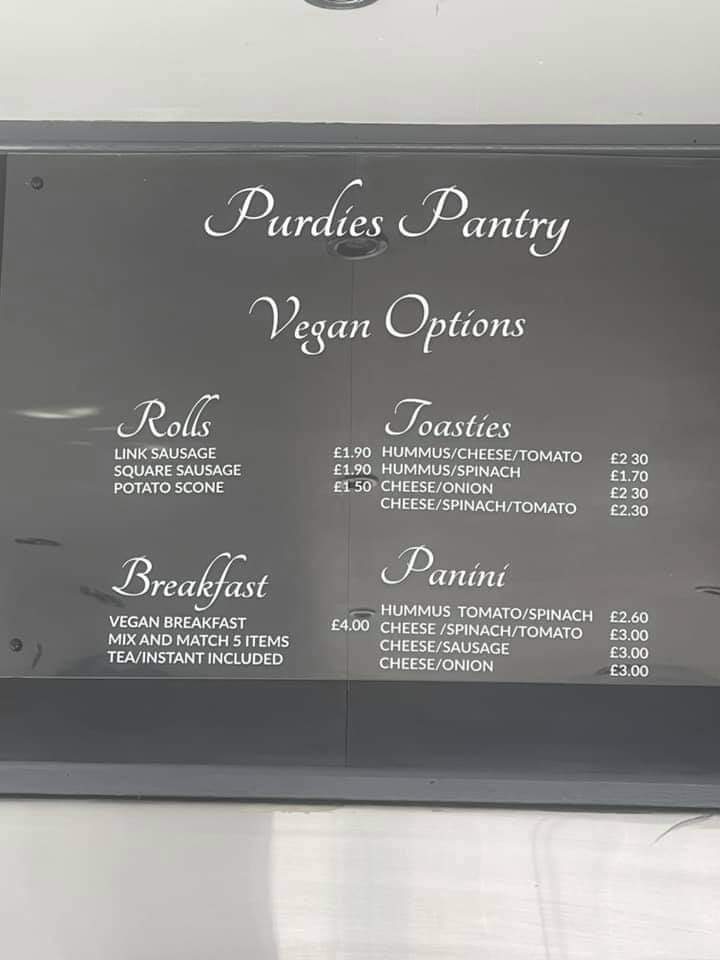 Purdies Pantry
Vegan Options
Rolls
LINK SAUSAGE £1.90
SQUARE SAUSAGE £1.90
POTATO SCONE £1 50
Toasties
HUMMUS/CHEESE/TOMATO £2 30
HUMMUS/SPINACH £1.70
CHEESE/ONION £2 30
CHEESE/SPINACH/TOMATO £2.30
Breakfast
VEGAN BREAKFAST £4.00
MIX AND MATCH 5 ITEMS
TEA/INSTANT INCLUDED
Panini
HUMMUS TOMATO/SPINACH £2.60
CHEESE /SPINACH/TOMATO £3.00
CHEESE/SAUSAGE £3.00
CHEESE/ONION £3.00